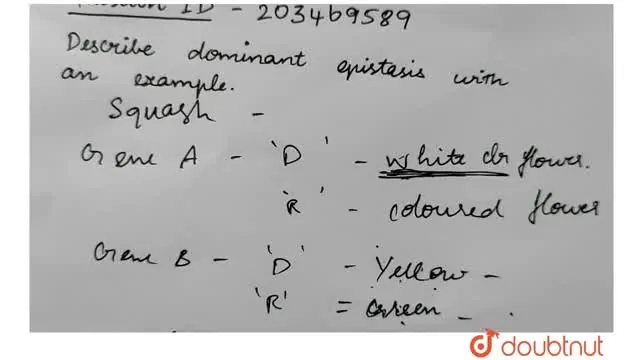 Question ID - 203469589
Describe dominant epistasis with
an example.
Squash -
Gene A - 'D' - white clr flower.
'R' - coloured flower
Gene B - 'D' - Yellow -
'R' = Green -
doubtnut